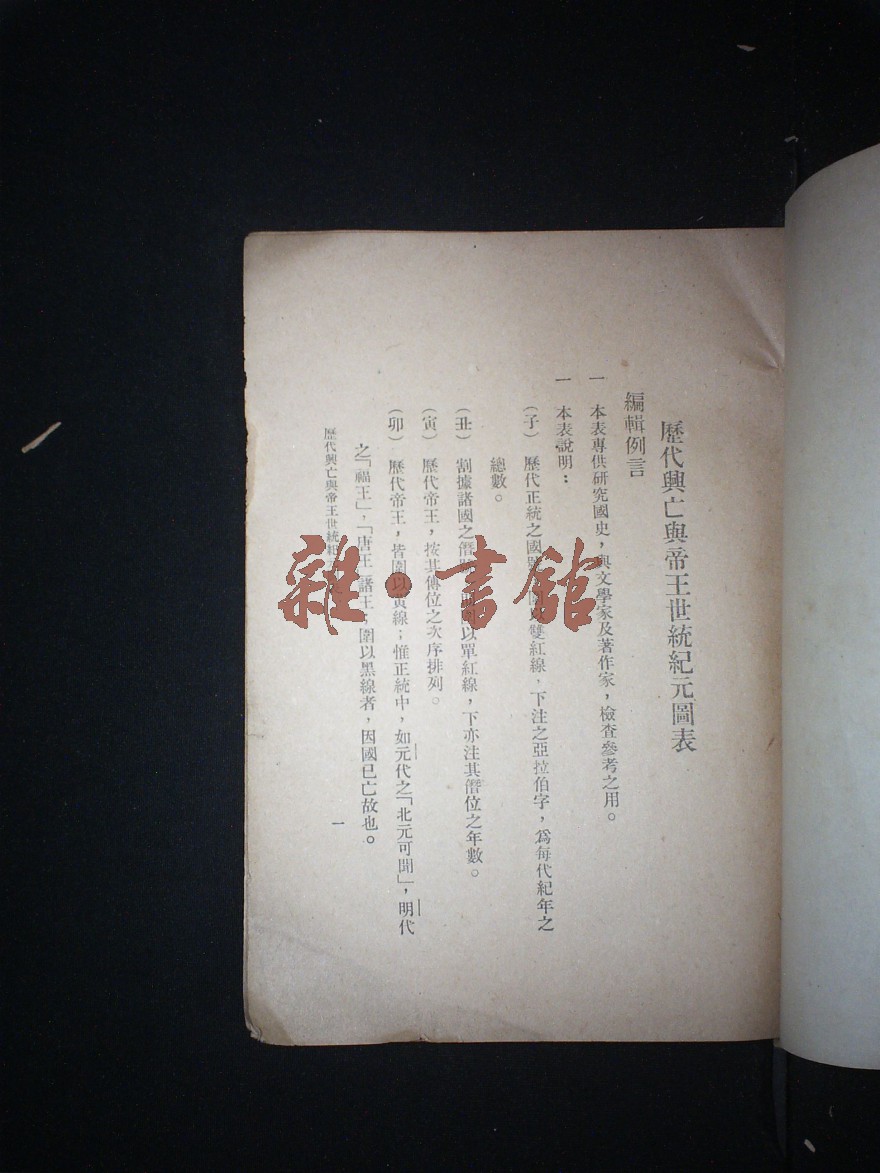 歷代興亡與帝王世統紀元圖表
編輯例言
一 本表專供研究國史,與文學家及著作家,檢查參考之用。
一 本表說明:
(子) 歷代正統之國 以雙紅線,下注之亞拉伯字,爲每代紀年之
總數。
(丑) 割據諸國之僭 以單紅線,下亦注其僭位之年數。
(寅) 歷代帝王,按其傳位之次序排列。
(卯) 歷代帝王,皆圍以黃線;惟正統中,如元代之「北元可聞」,明代
之「福王」,「唐王」諸王;圍以黑線者,因國已亡故也。
歷代興亡與帝王世統紀
一
雜·書館